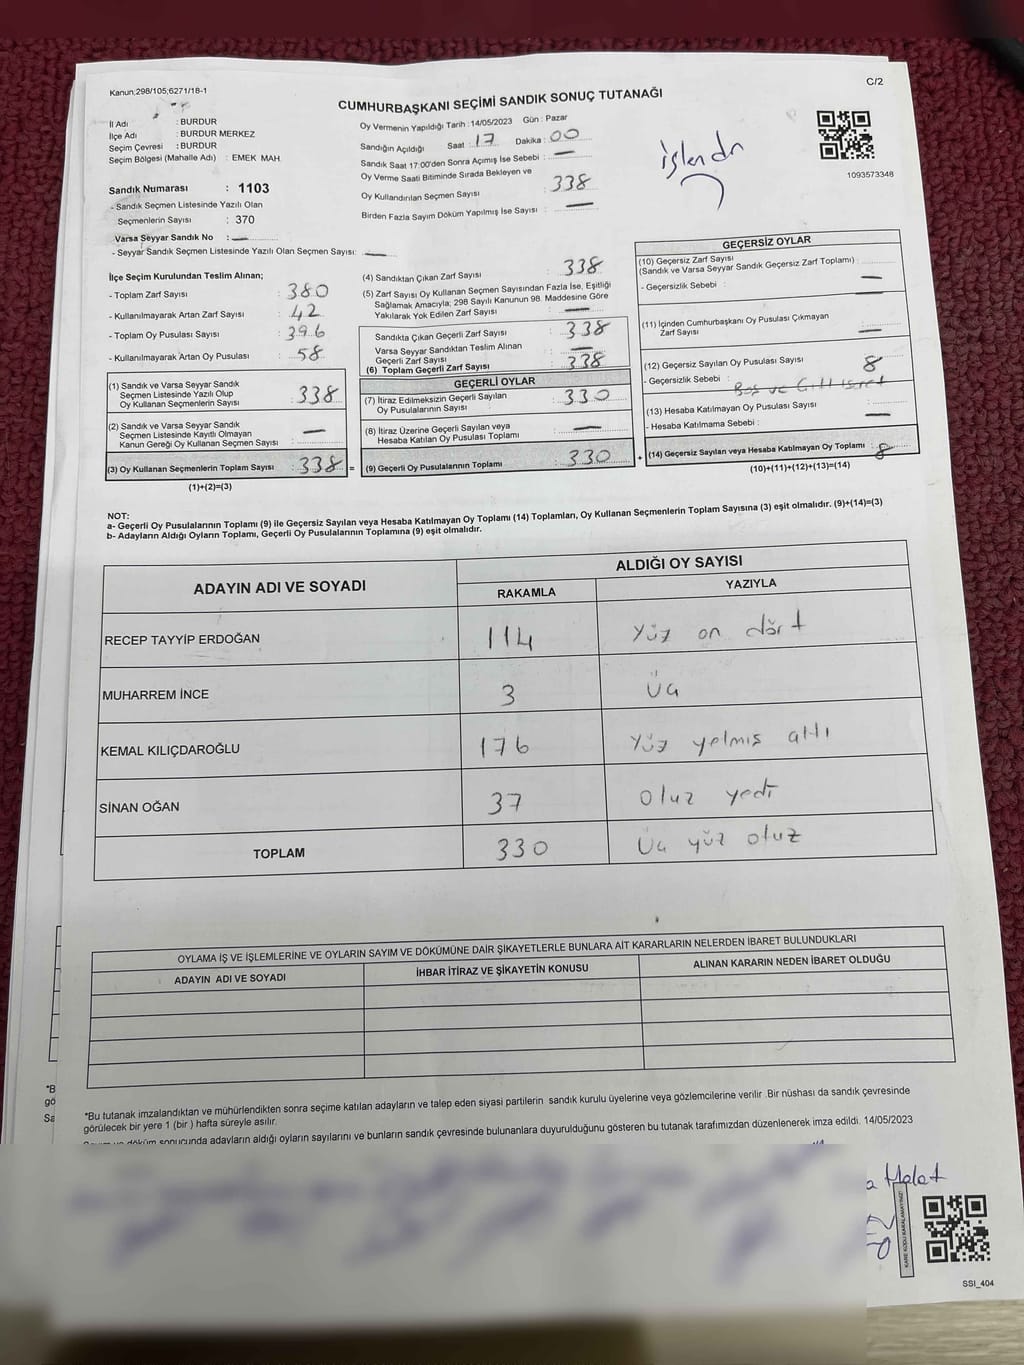 Kanun;298/105;6271/18-1
C/2
CUMHURBAŞKANI SEÇİMİ SANDIK SONUÇ TUTANAĞI
İl Adı : BURDUR
İlçe Adı : BURDUR MERKEZ
Seçim Çevresi : BURDUR
Seçim Bölgesi (Mahalle Adı) : EMEK MAH.
Sandık Numarası : 1103
- Sandık Seçmen Listesinde Yazılı Olan
Seçmenlerin Sayısı : 370
Varsa Seyyar Sandık No : —
- Seyyar Sandık Seçmen Listesinde Yazılı Olan Seçmen Sayısı: —
Oy Vermenin Yapıldığı Tarih :14/05/2023 Gün : Pazar
Sandığın Açıldığı Saat : 17 Dakika : 00
Sandık Saat 17:00'den Sonra Açımış İse Sebebi : —
Oy Verme Saati Bitiminde Sırada Bekleyen ve
Oy Kullandırılan Seçmen Sayısı : 338
Birden Fazla Sayım Döküm Yapılmış İse Sayısı : —
işlendi
1093573348
İlçe Seçim Kurulundan Teslim Alınan;
- Toplam Zarf Sayısı : 380
- Kullanılmayarak Artan Zarf Sayısı : 42
- Toplam Oy Pusulası Sayısı : 396
- Kullanılmayarak Artan Oy Pusulası : 58
(1) Sandık ve Varsa Seyyar Sandık
Seçmen Listesinde Yazılı Olup
Oy Kullanan Seçmenlerin Sayısı : 338
(2) Sandık ve Varsa Seyyar Sandık
Seçmen Listesinde Kayıtlı Olmayan
Kanun Gereği Oy Kullanan Seçmen Sayısı : —
(3) Oy Kullanan Seçmenlerin Toplam Sayısı : 338 =
(1)+(2)=(3)
(4) Sandıktan Çıkan Zarf Sayısı : 338
(5) Zarf Sayısı Oy Kullanan Seçmen Sayısından Fazla İse, Eşitliği
Sağlamak Amacıyla; 298 Sayılı Kanunun 98. Maddesine Göre
Yakılarak Yok Edilen Zarf Sayısı : —
Sandıkta Çıkan Geçerli Zarf Sayısı : 338
Varsa Seyyar Sandıktan Teslim Alınan
Geçerli Zarf Sayısı : —
(6) Toplam Geçerli Zarf Sayısı : 338
GEÇERLİ OYLAR
(7) İtiraz Edilmeksizin Geçerli Sayılan
Oy Pusulalarının Sayısı : 330
(8) İtiraz Üzerine Geçerli Sayılan veya
Hesaba Katılan Oy Pusulası Toplamı : —
(9) Geçerli Oy Pusulalarının Toplamı : 330 +
GEÇERSİZ OYLAR
(10) Geçersiz Zarf Sayısı
(Sandık ve Varsa Seyyar Sandık Geçersiz Zarf Toplamı) : —
- Geçersizlik Sebebi :
(11) İçinden Cumhurbaşkanı Oy Pusulası Çıkmayan
Zarf Sayısı : —
(12) Geçersiz Sayılan Oy Pusulası Sayısı : 8
- Geçersizlik Sebebi : Boş ve
(13) Hesaba Katılmayan Oy Pusulası Sayısı : —
- Hesaba Katılmama Sebebi :
(14) Geçersiz Sayılan veya Hesaba Katılmayan Oy Toplamı : 8
(10)+(11)+(12)+(13)=(14)
NOT:
a- Geçerli Oy Pusulalarının Toplamı (9) ile Geçersiz Sayılan veya Hesaba Katılmayan Oy Toplamı (14) Toplamları, Oy Kullanan Seçmenlerin Toplam Sayısına (3) eşit olmalıdır. (9)+(14)=(3)
b- Adayların Aldığı Oyların Toplamı, Geçerli Oy Pusulalarının Toplamına (9) eşit olmalıdır.
ADAYIN ADI VE SOYADI
ALDIĞI OY SAYISI
RAKAMLA YAZIYLA
RECEP TAYYİP ERDOĞAN 114 Yüz on dört
MUHARREM İNCE 3 Üç
KEMAL KILIÇDAROĞLU 176 Yüz yetmiş altı
SİNAN OĞAN 37 Otuz yedi
TOPLAM 330 Üç yüz otuz
OYLAMA İŞ VE İŞLEMLERİNE VE OYLARIN SAYIM VE DÖKÜMÜNE DAİR ŞİKAYETLERLE BUNLARA AİT KARARLARIN NELERDEN İBARET BULUNDUKLARI
ADAYIN ADI VE SOYADI İHBAR İTİRAZ VE ŞİKAYETİN KONUSU ALINAN KARARIN NEDEN İBARET OLDUĞU
*Bu tutanak imzalandıktan ve mühürlendikten sonra seçime katılan adayların ve talep eden siyasi partilerin sandık kurulu üyelerine veya gözlemcilerine verilir .Bir nüshası da sandık çevresinde
görülecek bir yere 1 (bir ) hafta süreyle asılır.
döküm sonucunda adayların aldığı oyların sayılarını ve bunların sandık çevresinde bulunanlara duyurulduğunu gösteren bu tutanak tarafımızdan düzenlenerek imza edildi. 14/05/2023
KARE KODU KARALAMAYINIZ!
SSI_404